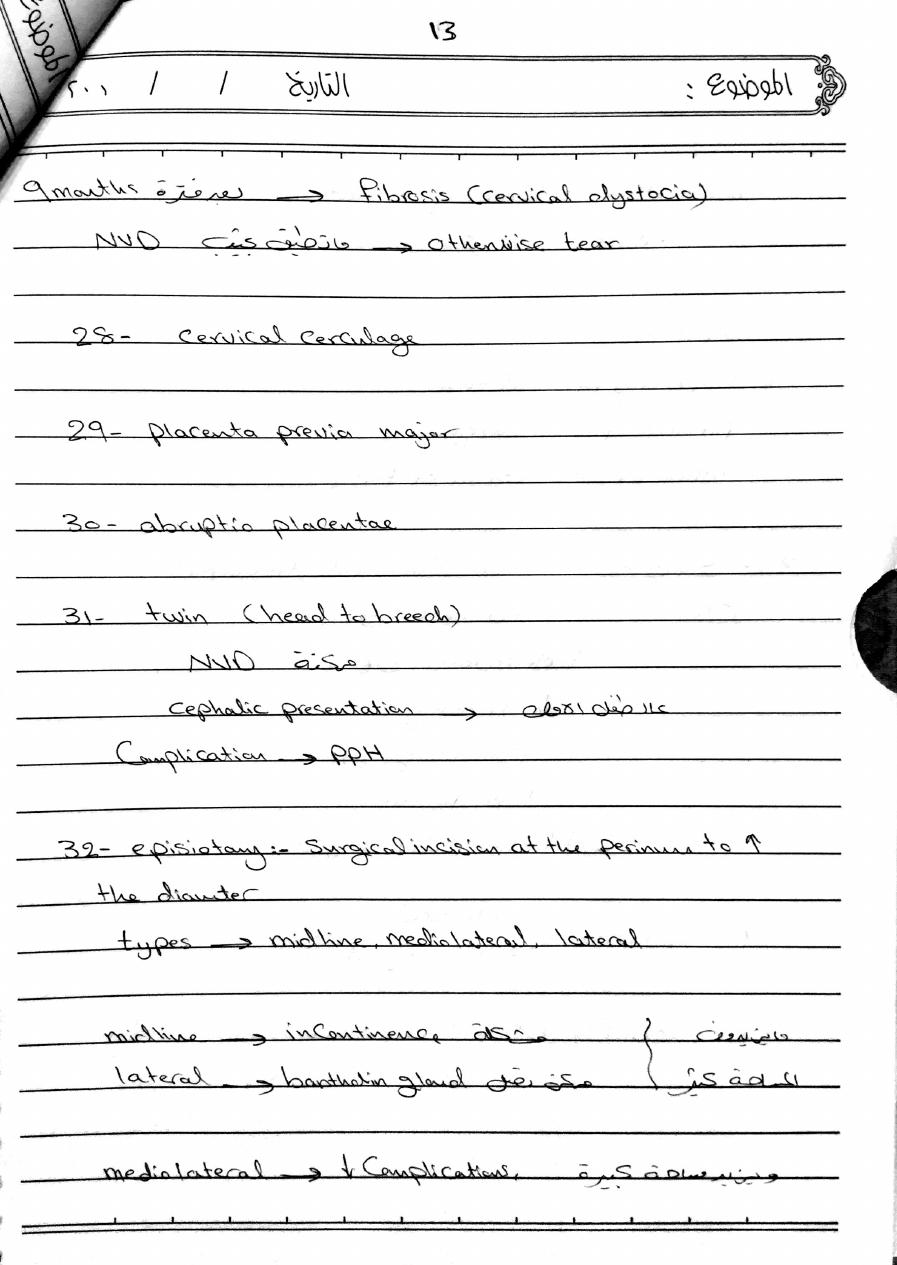 13
الموضوع :
التاريخ / / ٢٠٠١
الموضوع
9 months بعد فترة → fibrosis (cervical dystocia)
NVD → otherwise tear
28- cervical cerculage
29- placenta previa major
30- abruptio placentae
31- twin (head to breech)
NVD ممكنة
cephalic presentation →
Complication → PPH
32- episiotomy :- Surgical incision at the perinum to ↑
the diamter
types → midline, mediolateral, lateral
midline → incontinence مشكلة
lateral → bartholin gland ممكن
المساحة كثير
mediolateral → ↓ Complications, مساحة كبيرة